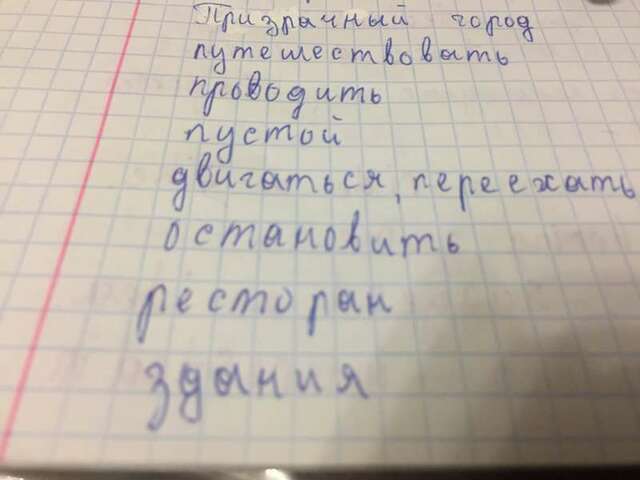 Призрачный город
путешествовать
проводить
пустой
двигаться, переехать
остановить
ресторан
здания